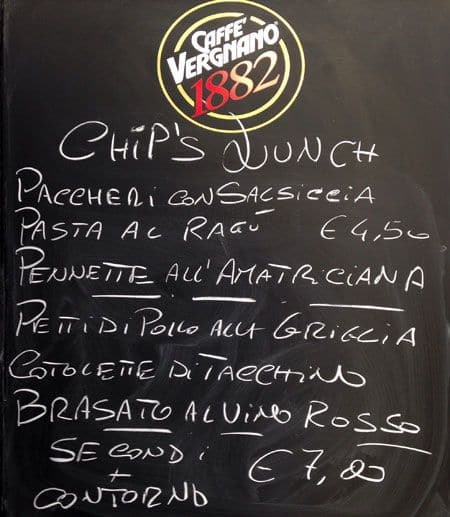 CAFFÈ
VERGNANO
1882
CHIP'S LUNCH
PACCHERI CON SALSICCIA
PASTA AL RAGÙ € 4,50
PENNETTE ALL'AMATRICIANA
PETTI DI POLLO ALLA GRIGLIA
COTOLETTE DI TACCHINO
BRASATO AL VINO ROSSO
SECONDI
+ € 7,00
CONTORNO